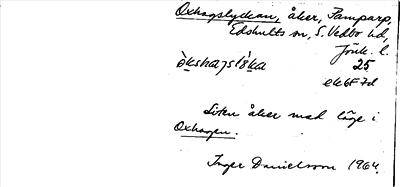 Oxhagslyckan, åker, Pamparp,
Edshults sn, S. Vedbo hd,
Jönk. l.
25
ek6F7d
Liten åker med läge i
Oxhagen.
Inger Danielsson 1964.